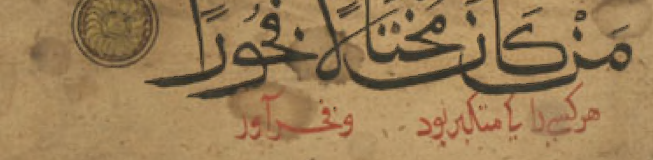 مَنْ كَانَ مُخْتَالًا فَخُورًا
هر کسی را که متکبر بود و فخر آور